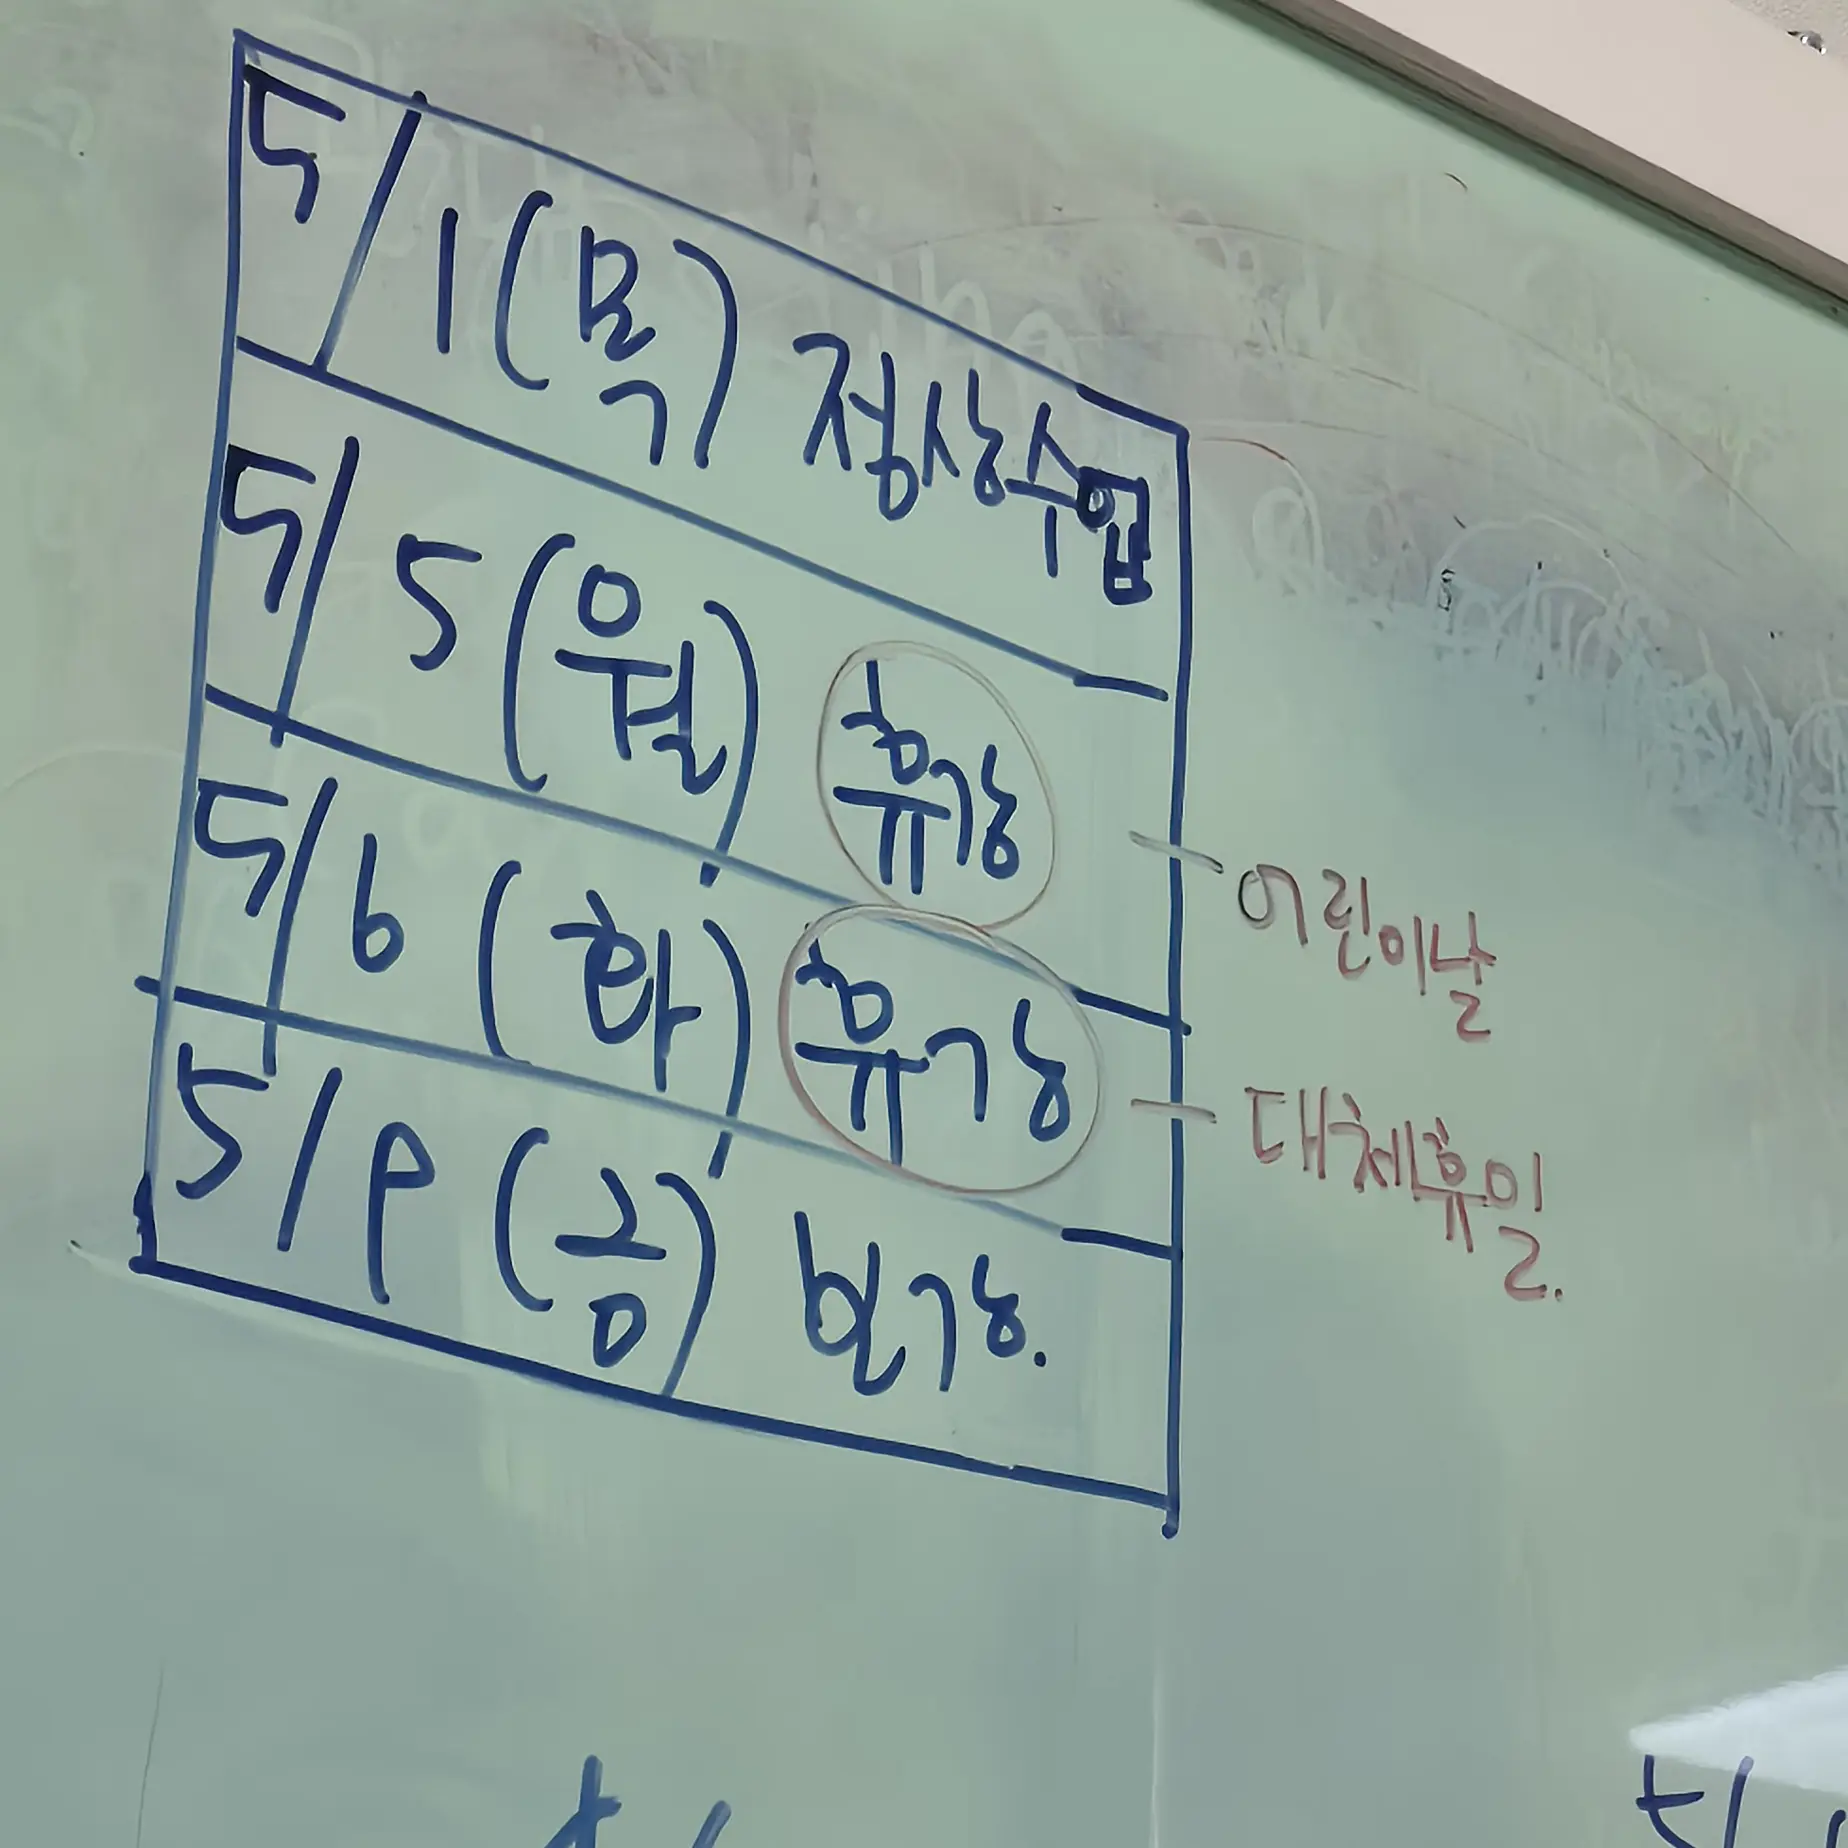 5/1(목) 정상수업
5/5(월) 휴강 - 어린이날
5/6(화) 휴강 - 대체휴일.
5/9(금) 보강.